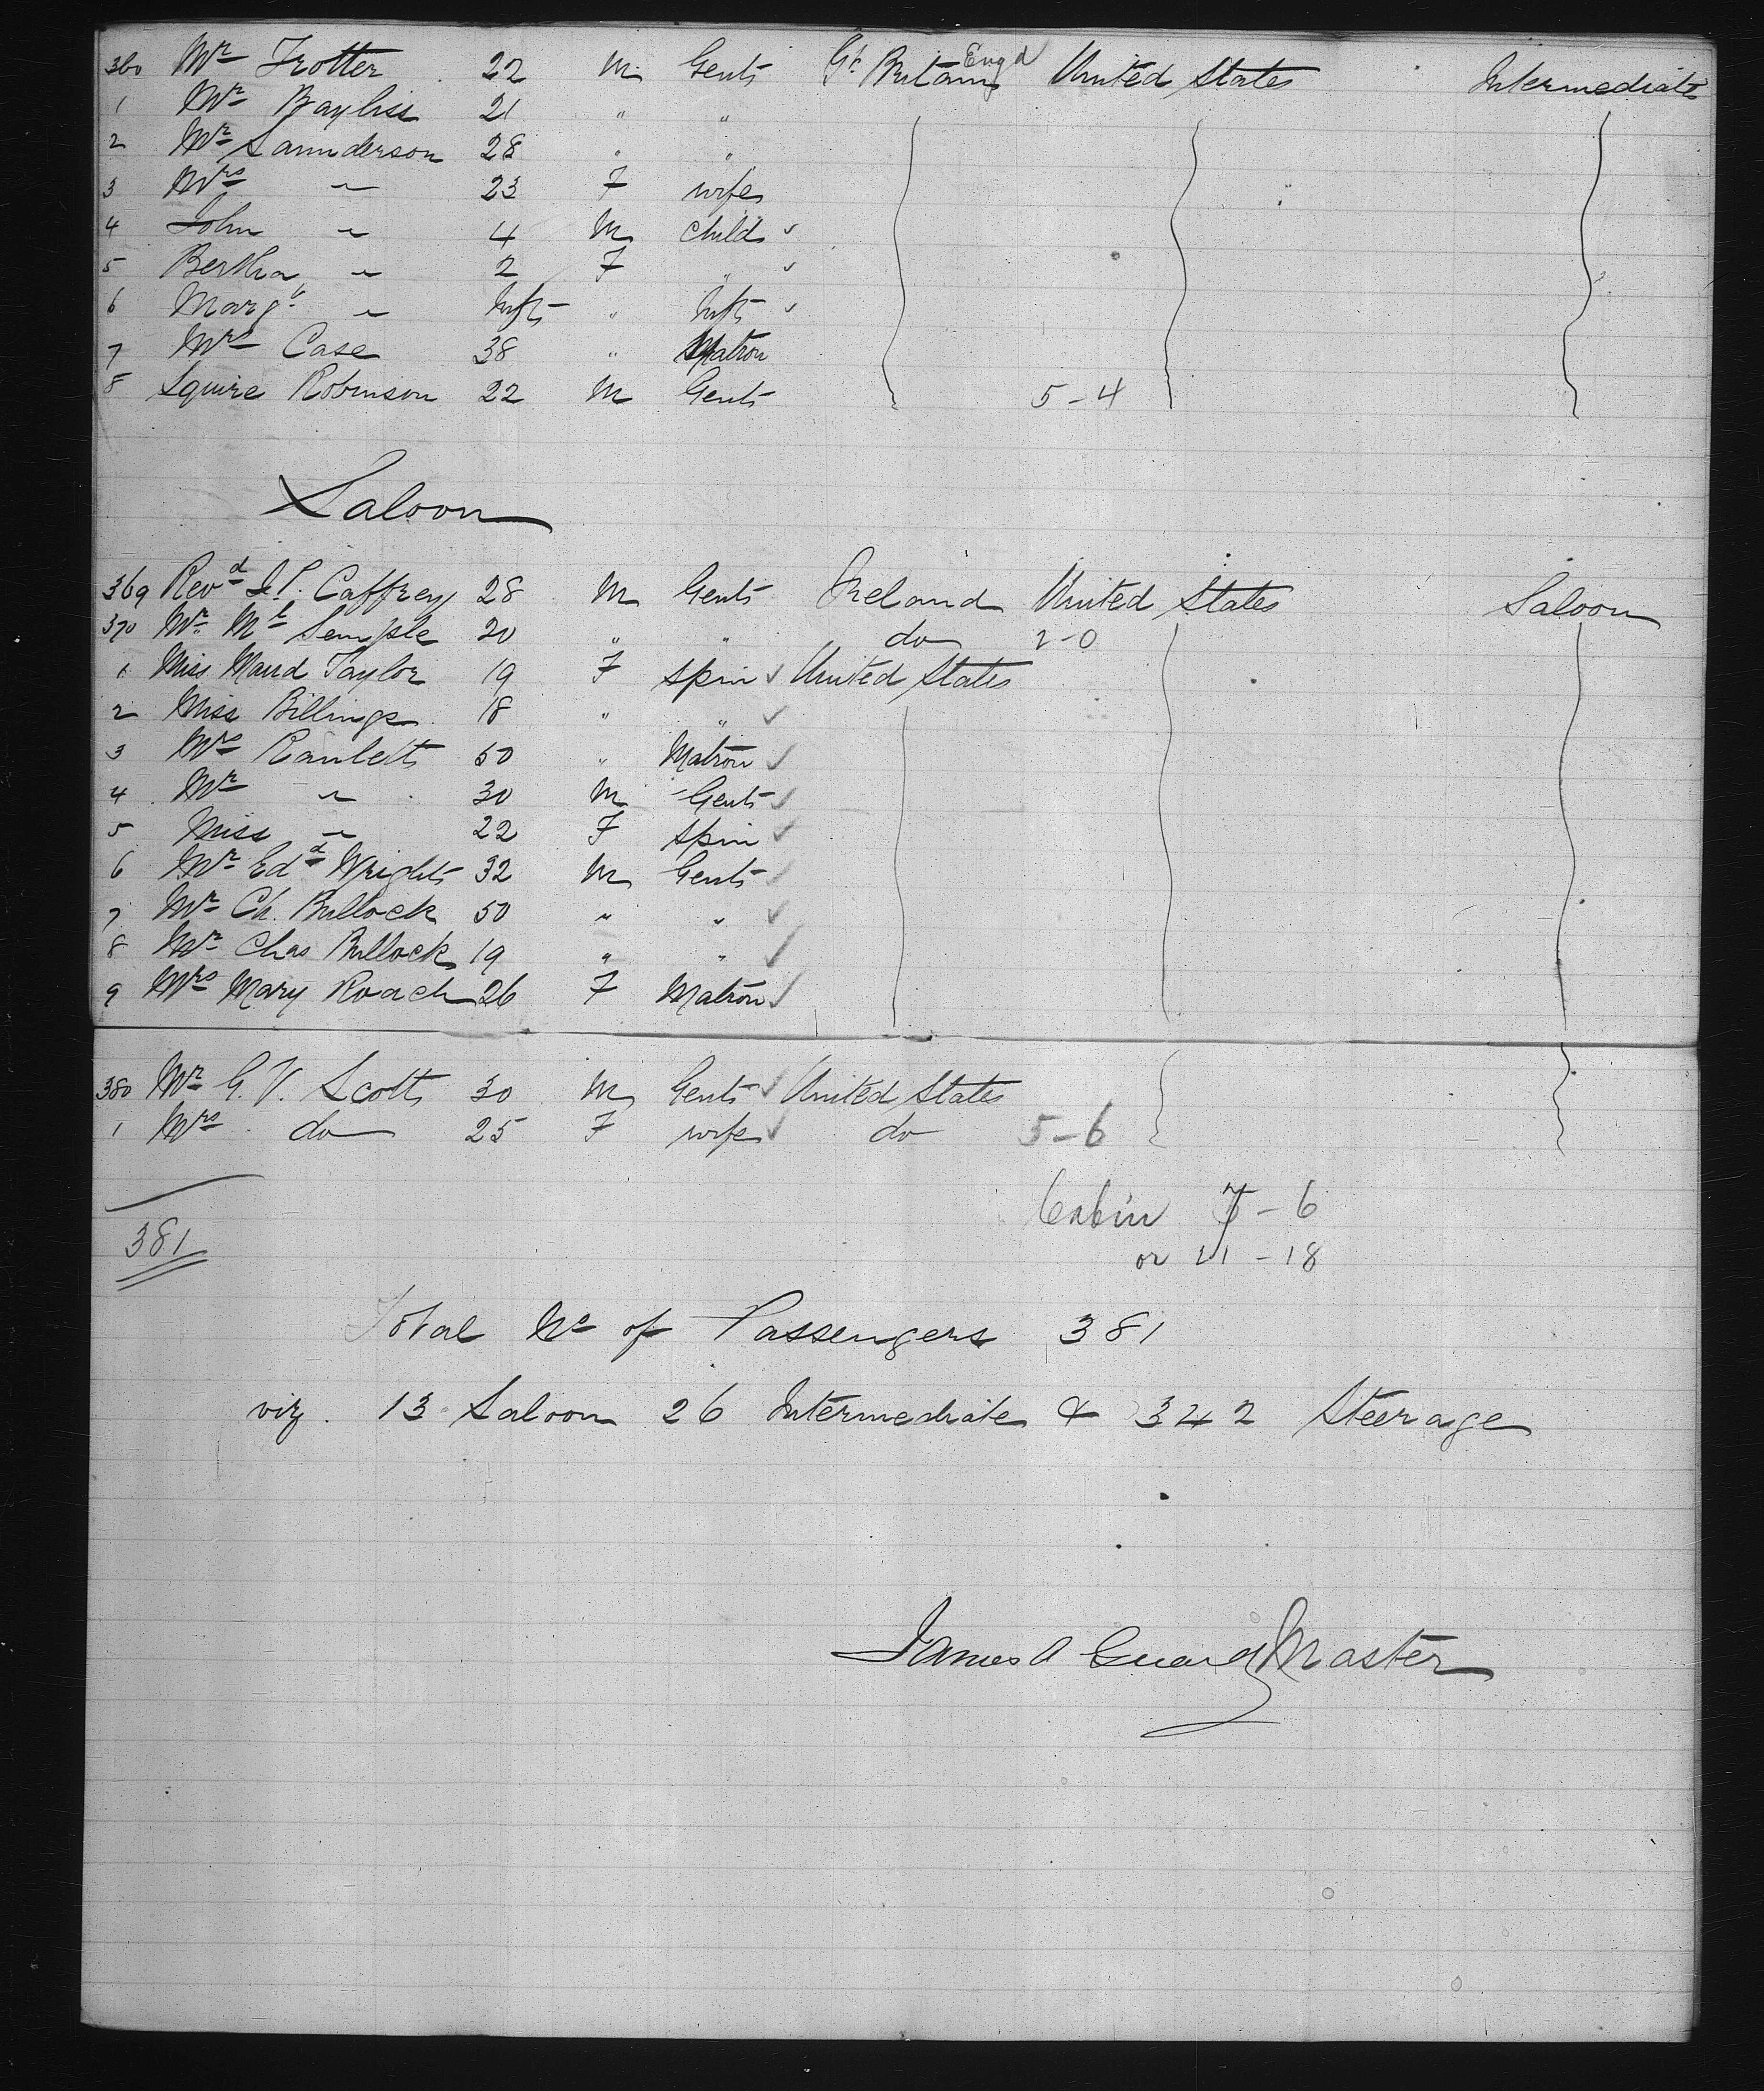 360 Mr Trotter 22 M Gent Gt Britain Engd United States Intermediate
1 Mr Bayliss 21 " "
2 Mr Saunderson 28 " "
3 Mrs " 23 F wife
4 John " 4 M child ✓
5 Bertha " 2 F " ✓
6 Margt " Inft " Inft ✓
7 Mrs Case 38 " Matron
8 Squire Robinson 22 M Gent 5-4
Saloon
369 Revd Caffrey 28 M Gent Ireland United States Saloon
370 Mr Semple 20 " " do 2-0
1 Miss Maud Taylor 19 F Spin ✓ United States
2 Miss Billings 18 " " ✓
3 Mrs Ranlett 50 " Matron ✓
4 Mr " 30 M Gent ✓
5 Miss " 22 F Spin ✓
6 Mr Edd Wright 32 M Gent ✓
7 Mr Ch. Bullock 50 " " ✓
8 Mr Chas Bullock 19 " " ✓
9 Mrs Mary Roach 26 F Matron ✓
380 Mr G. V. Scott 30 M Gent ✓ United States
1 Mrs do 25 F wife ✓ do 5-6
381
Cabin 7-6
or 21-18
Total No of Passengers 381
viz. 13 Saloon 26 Intermediate & 342 Steerage
James A Guard Master